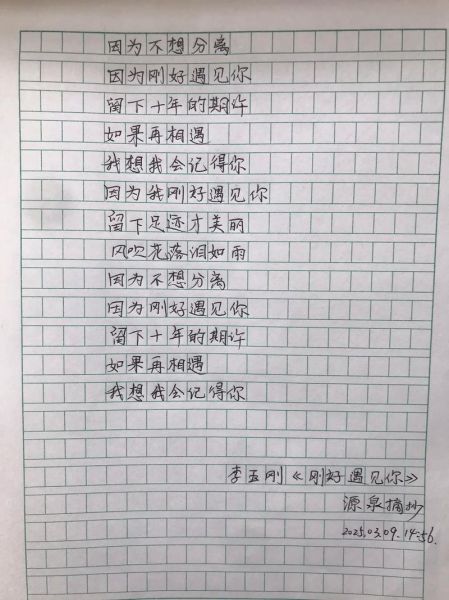 因为不想分离
因为刚好遇见你
留下十年的期许
如果再相遇
我想我会记得你
因为我刚好遇见你
留下足迹才美丽
风吹花落泪如雨
因为不想分离
因为刚好遇见你
留下十年的期许
如果再相遇
我想我会记得你
李玉刚《刚好遇见你》
源泉摘抄
2025.03.09.14:56.